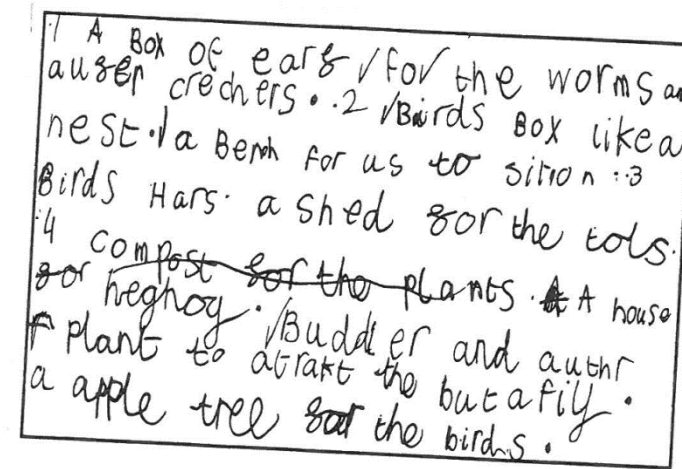 ·1 A Box of earf √for the worms an
aufer crechers. .2 √Bairds Box like a
nest. √a Bench for us to sition :3
Birds Hars. a shed for the tols.
:4 compost for the plants. A A house
for heghog. √Buddler and authr
plant to atrakt the butafiy.
a apple tree for the birds.